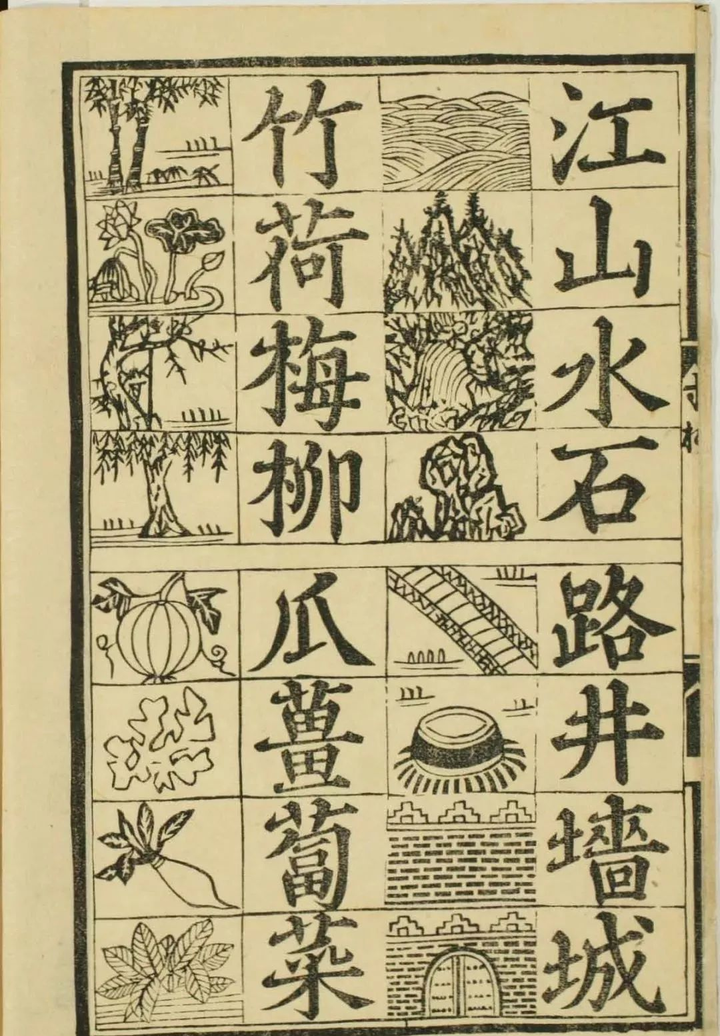 江山水石路井墻城
竹荷梅柳瓜薑蔔菜